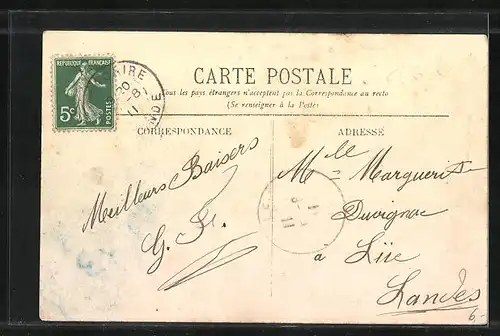 RÉPUBLIQUE FRANÇAISE
5c
POSTES
CARTE POSTALE
Tous les pays étrangers n'acceptent pas la Correspondance au recto
(Se renseigner à la Poste)
CORRESPONDANCE
Meilleurs Baisers
ADRESSE
Mlle Marguerite
Duvignac
à Lüe
Landes
6-